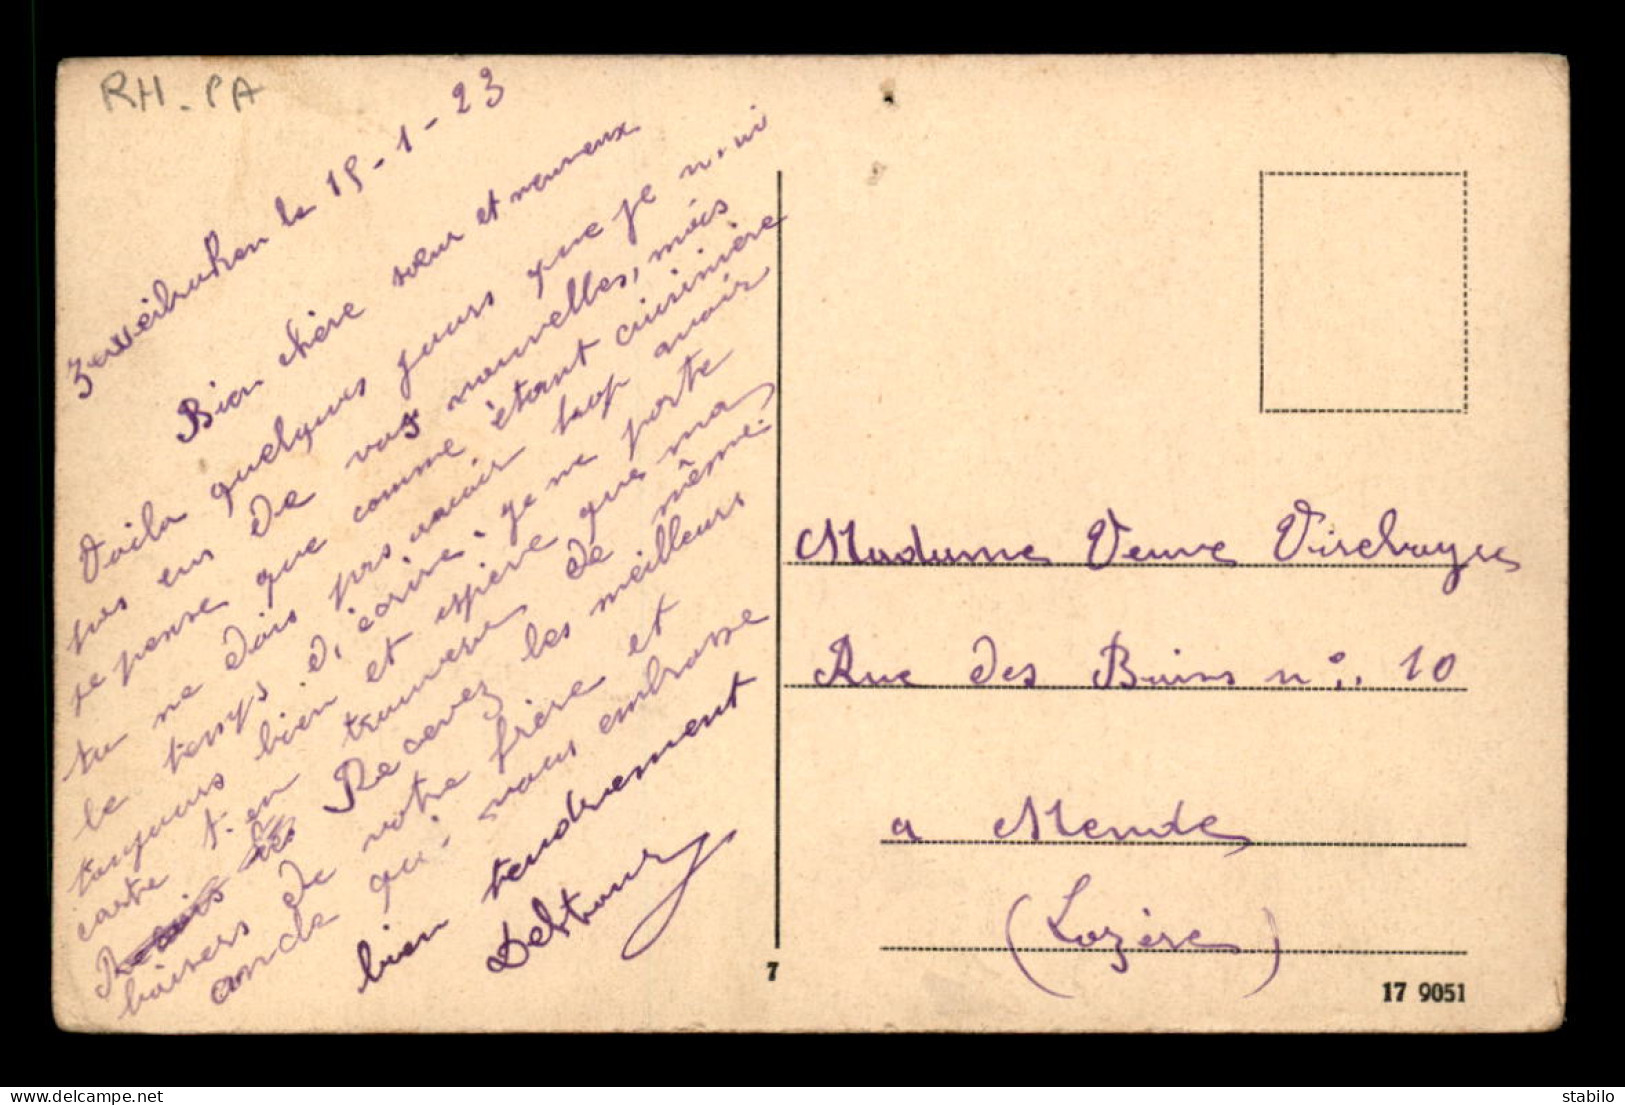 RH - PA
Zweibruken le 15-1-23
Bien chère sœur et neuveux
Voila quelques jours que je n'ai
pas eus de vos nouvelles, mais
je pense que comme étant cuisinière
tu ne dois pas avoir trop avoir
le temps d'écrire. je me porte
toujours bien et espère que ma
carte t-en trouvera de même.
Recevez les meilleurs
baisers de votre frère et
oncle qui vous embrasse
bien tendrement
Destour
Madame Veuve
Rue des Bains n° 10
a Mende
(Lozère)
7
17 9051
delcampe.net
stabilo